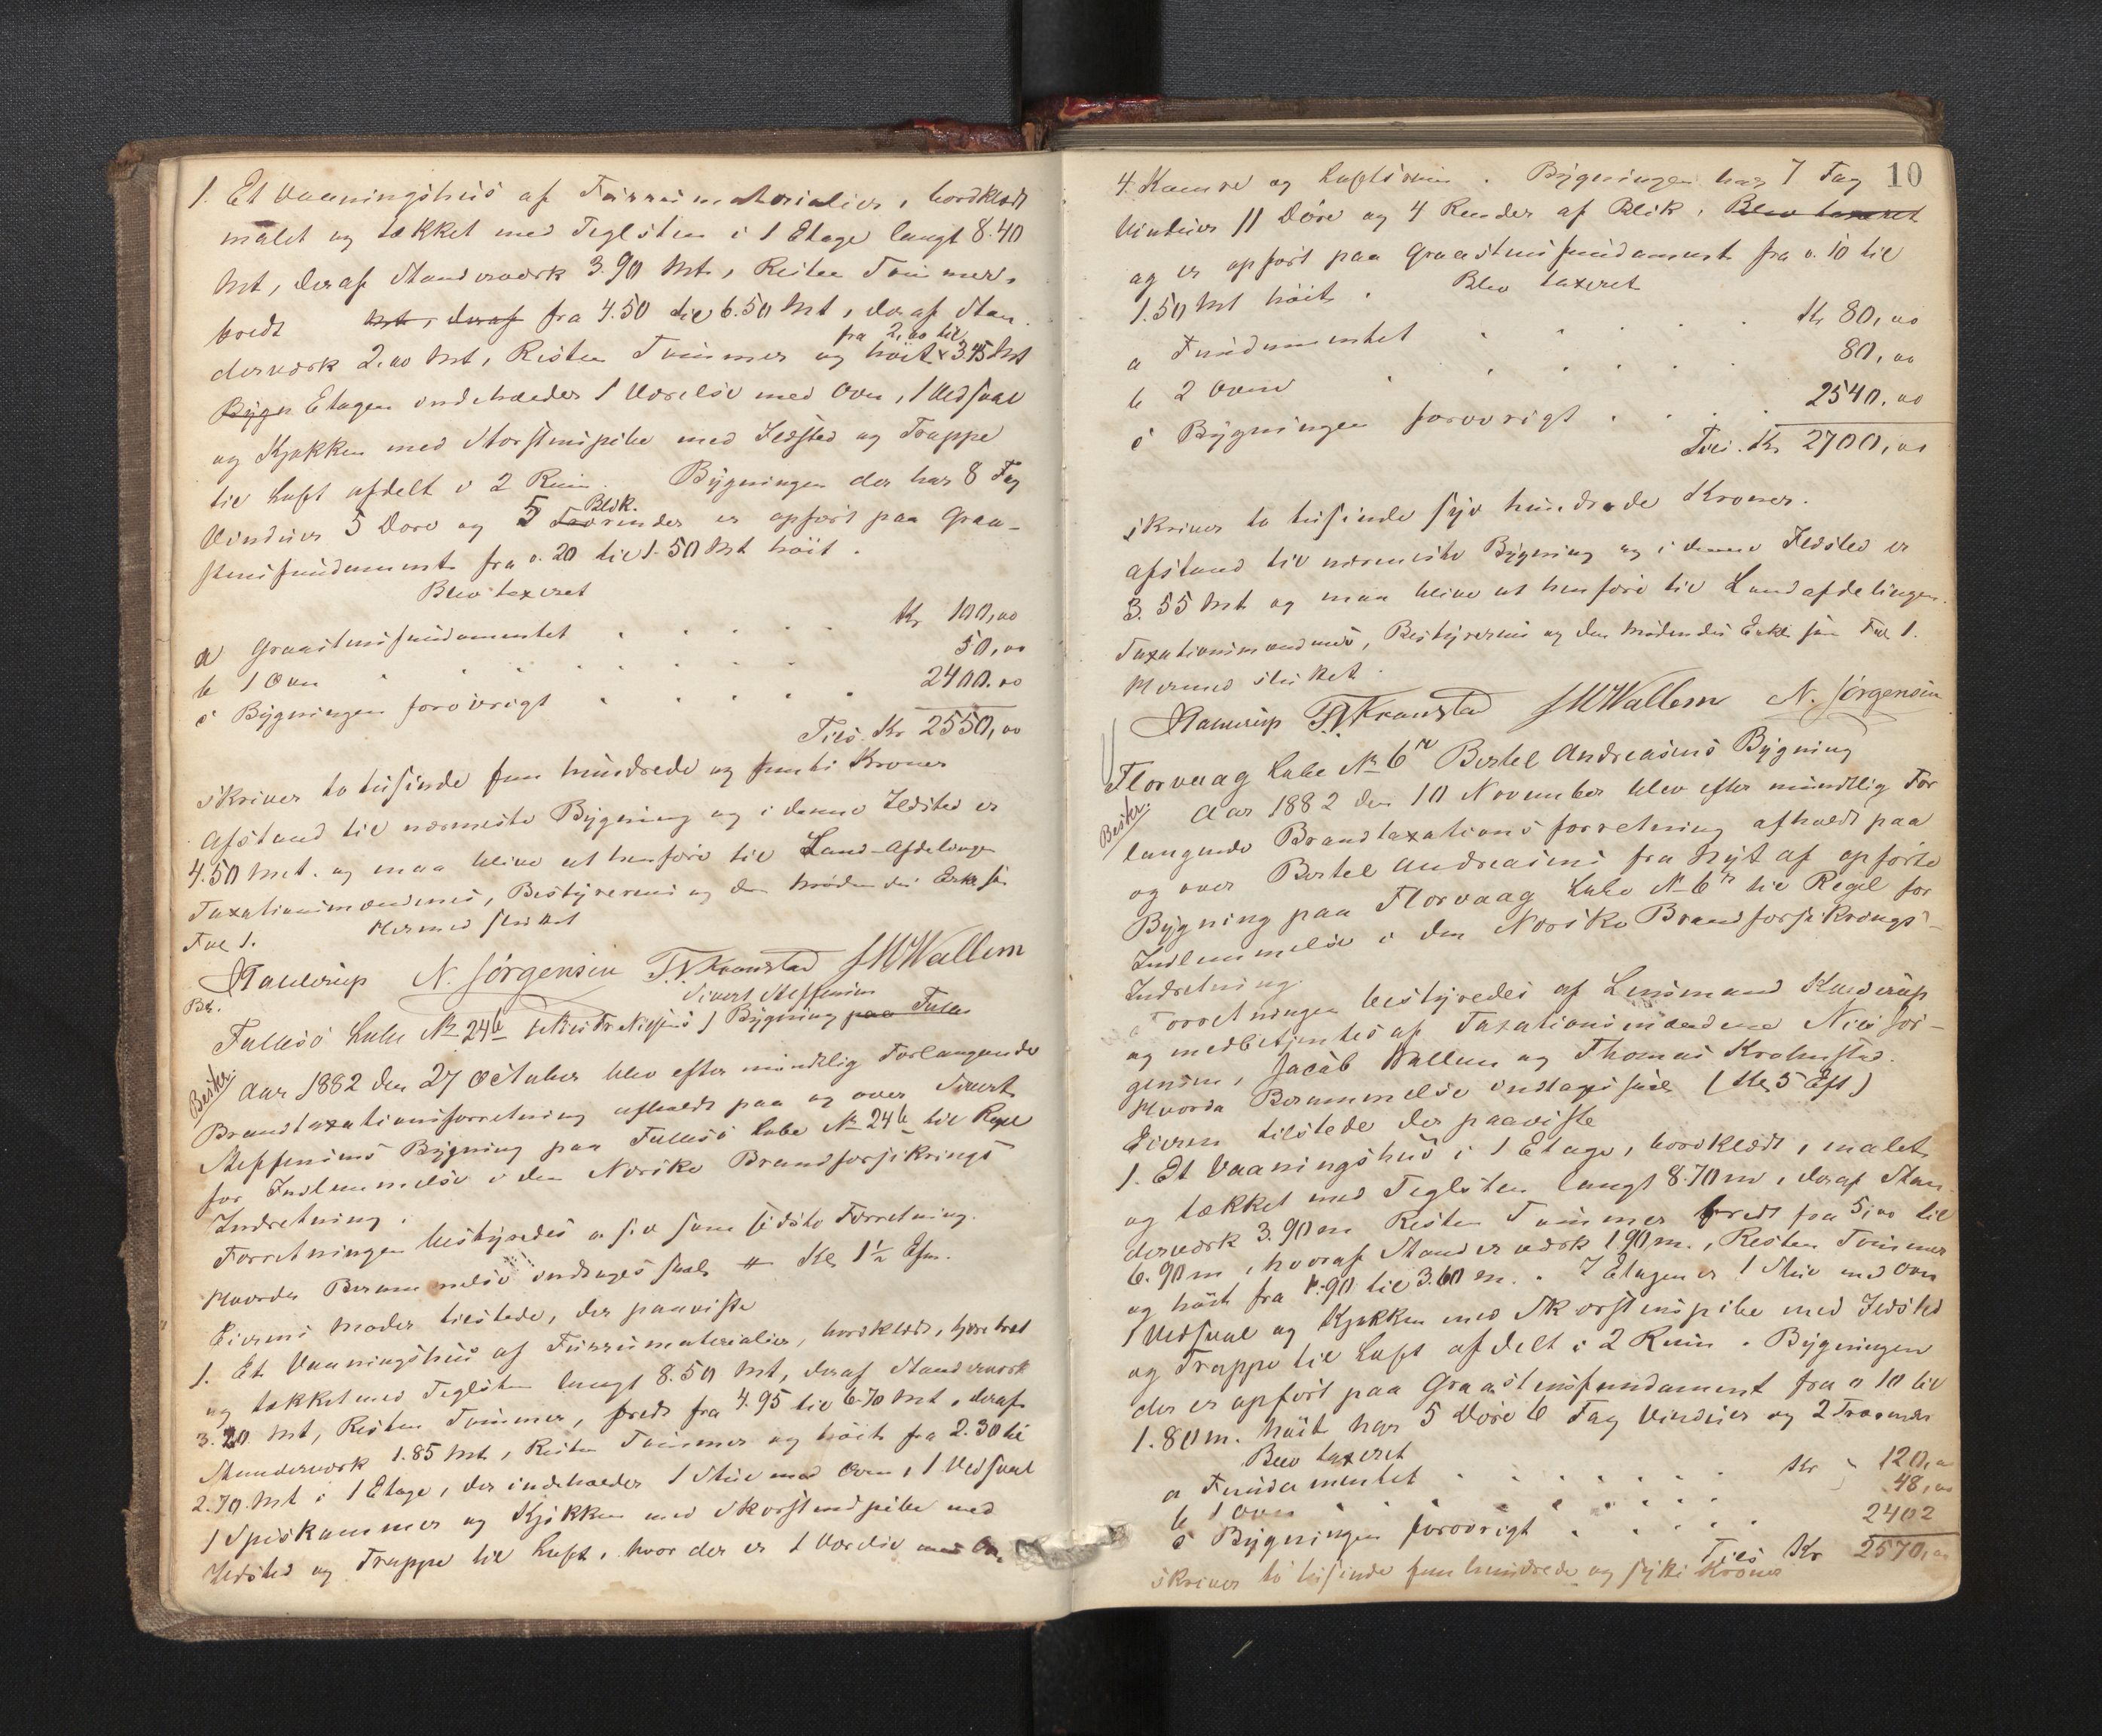 1. Et Vaaningshuus af Furrumaterialier, bordklædt
malet og tækket med Teglsten i 1 Etage langt 8.40
Mt, deraf Standerværk 3.90 Mt, Resten Tømmer,
bredt Mt, deraf fra 4.50 til 6.50 Mt, deraf Stan-
derværk 2,00 Mt, Resten Tømmer og høit fra 2,00 til 3.45 Mt
Bygn Etagen indeholder 1 Værelse med Ovn, 1 Vedsval
og Kjøkken med Skorstenspibe med Ildsted og Trappe
til Loft afdelt i 2 Rum. Bygningen der har 8 Fag
Vinduer 5 Døre og 5 Blik. render er opført paa Graa-
stensfundament fra 0.20 til 1.50 Mt høit.
Blev taxeret
a Graastensfundamentet . . . . . Kr 100,00
b 1 Ovn . . . . . . . 50,00
c Bygningen forøvrigt . . . . 2400.00
Tils. Kr 2550,00
skriver to tusinde fem hundrede og femti Kroner
Afstand til nærmeste Bygning og i denne Ildsted er
4.50 Mt. og maa blive at henføre til Land-Afdelingen
Taxationsmændenes, Bestyrerens og den mødendes Erkl. se
Fol 1. Hermed sluttet
N. Jørgensen T. Kronstad J M Wallem
Sivert Steffensens
Løbe No 24 b 1 Bygning paa
Beskr.
Aar 1882 den 27 October blev efter mundtlig Forlangende
Brandtaxationsforretning afholdt paa og over Sivert
Steffensens Bygning paa Løbe No 24 b til Regel
for Indlemmelse i den Norske Brandforsikrings
Indretning.
Forretningen bestyredes o. s. v. som sidste Forretning.
Hvorda Berammelse indtages saal. Kl. 1½ Efm.
Eierens Moder tilstede, der paaviste
1. Et Vaaningshuus af Furrumaterialier, bordklædt, tjærebræt
og tækket med Teglsten langt 8.50 Mt, deraf Standerværk
3.20 Mt, Resten Tømmer, bredt fra 4.95 til 6.70 Mt, deraf
Standerværk 1.85 Mt, Resten Tømmer og høit fra 2.30 til
2.70 Mt i 1 Etage, der indeholder 1 Stue med Ovn, 1 Vedsval
1 Spiskammer og Kjøkken med Skorstenspibe med
Ildsted og Trappe til Loft, hvor der er 1 Værelse med Ovn
10
4 Kamre og Loftsrum. Bygningen har 7 Fag
Vinduer 11 Døre og 4 Render af Blik, Blev taxeret
og er opført paa Graastensfundament fra 0.10 til
1.50 Mt høit. Blev taxeret
a Fundamentet . . . . Kr 80,00
b 2 Ovne . . . . . 80,00
c Bygningen forøvrigt . . . . 2540.00
Tils. Kr 2700,00
skriver to tusinde syv hundrede Kroner.
Afstand til nærmeste Bygning og i denne Ildsted er
3.55 Mt og maa blive at henføre til Landafdelingen.
Taxationsmændenes, Bestyrerens og den mødendes Erkl. see Fol 1.
Hermed sluttet.
T. Kronstad J M Wallem N. Jørgensen
Florvaag Løbe No 6 Bertel Andreasens Bygning
Beskr.
Aar 1882 den 10 November blev efter mundtlig For
langende Brandtaxationsforretning afholdt paa
og over Bertel Andreasens fra Nyt af opførte
Bygning paa Florvaag Løbe No 6 til Regel for
Indlemmelse i den Norske Brandforsikrings-
Indretning.
Forretningen bestyredes af Lensmand
og medbetjentes af Taxationsmændene Nils Jør-
gensen, Jacob Wallem og Thomas Krohnstad.
Hvorda Berammelse indtages saal (Kl 5 Eft)
Eieren tilstede der paaviste
1. Et Vaaningshuus i 1 Etage, bordklædt, malet
og tækket med Teglsten langt 8.70 m, deraf Stan-
derværk 3.90 m Resten Tømmer bredt fra 5,00 til
6.90 m, hvoraf Standerværk 1.90 m., Resten Tømmer
og høit fra 1.90 til 3.60 m. I Etagen er 1 Stue med Ovn
1 Vedsval og Kjøkken med Skorstenspibe med Ildsted
og Trappe til Loft afdelt i 2 Rum. Bygningen
der er opført paa Graastensfundament fra 0.10 til
1.80 m. høit har 5 Døre 6 Fag Vinduer og 2 Trærender
Blev taxeret
a Fundamentet . . . . . . Kr 120,00
b 1 Ovn . . . . . . . 48,00
c Bygningen forøvrigt . . . . . 2402
Tils Kr 2570,00
skriver to tusinde fem hundrede og sytti Kroner